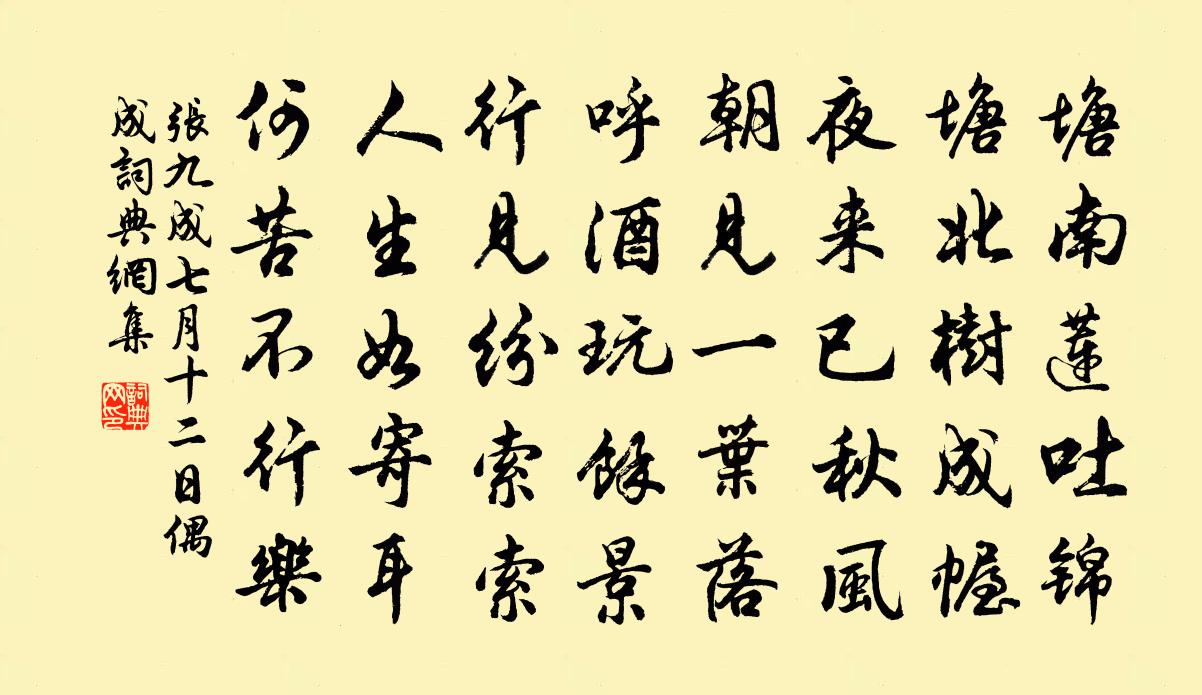 塘南蓮吐锦
塘北樹成幄
夜来已秋風
朝見一葉落
呼酒玩餘景
行見纷索索
人生如寄耳
何苦不行樂
張九成七月十二日偶
成詞典網集
詞典网印